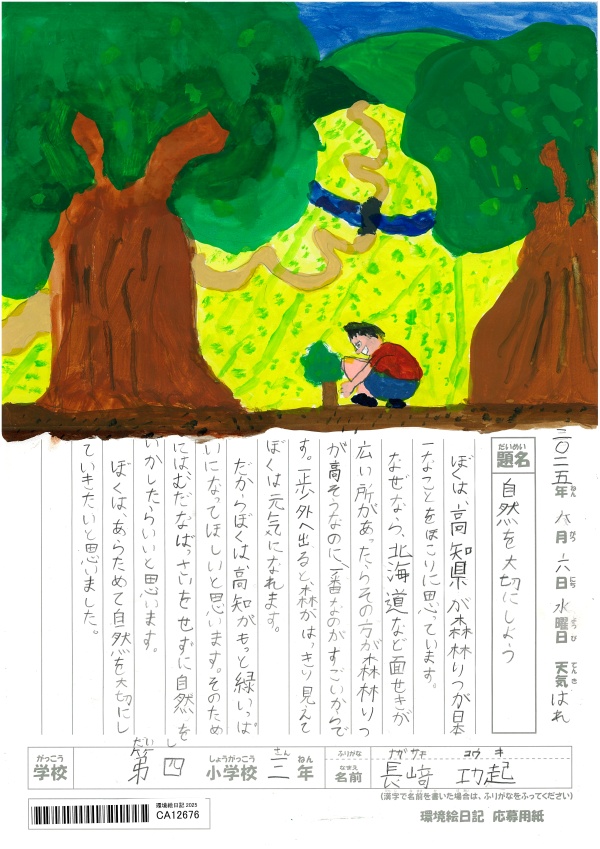 二〇二五年 八月 六日 水曜日 天気 はれ
ねん がつ にち ようび てんき
だいめい
題名 自然を大切にしよう
ぼくは、高知県が森林りつが日本
一なことをほこりに思っています。
なぜなら、北海道など面せきが
広い所があったらその方が森林りつ
が高そうなのに、一番なのがすごいからで
す。一歩外へ出ると、森がはっきり見えて
ぼくは元気になれます。
だからぼくは、高知がもっと緑いっぱ
いになってほしいと思います。そのため
にはむだなばっさいをせずに自然を
いかしたらいいと思います。
ぼくは、あらためて自然を大切にし
ていきたいと思いました。
がっこう だい し しょうがっこう さん ねん ふりがな ナガサキ コウキ
学校 第四 小学校 三年 なまえ 名前 長﨑 功起
(漢字で名前を書いた場合は、ふりがなをふってください)
環境絵日記 応募用紙
環境絵日記 2025
CA12676